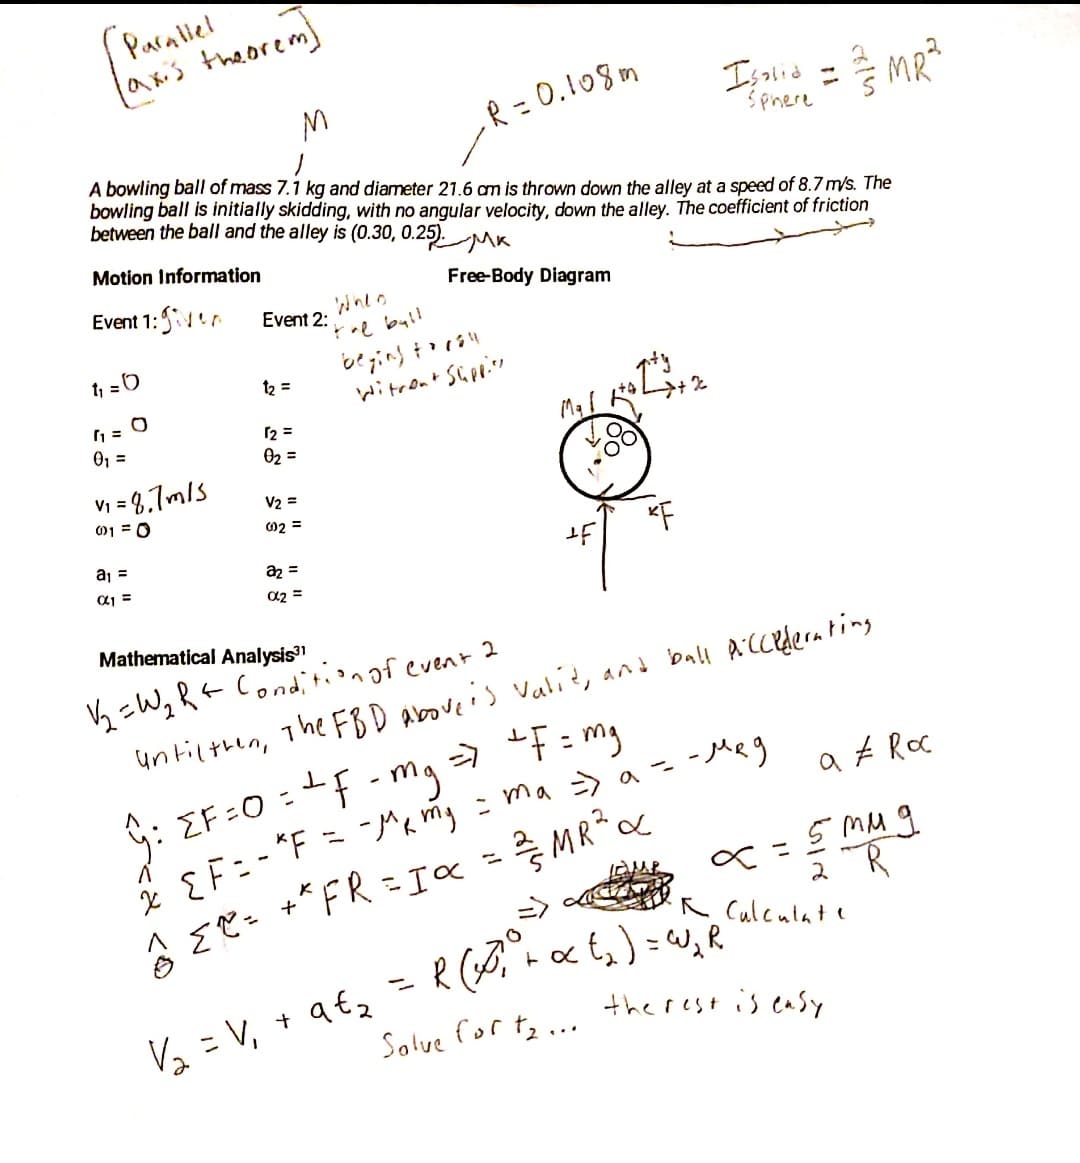 [Parallel
axis theorem]
M
R = 0.108m
I solid sphere = 2/5 MR²
A bowling ball of mass 7.1 kg and diameter 21.6 cm is thrown down the alley at a speed of 8.7 m/s. The
bowling ball is initially skidding, with no angular velocity, down the alley. The coefficient of friction
between the ball and the alley is (0.30, 0.25).
μK
Motion Information
Free-Body Diagram
Event 1: Given
Event 2: When
the ball
begins to roll
without slipping
t₁ = 0
t₂ =
r₁ = 0
r₂ =
θ₁ =
θ₂ =
v₁ = 8.7m/s
v₂ =
ω₁ = 0
ω₂ =
a₁ =
a₂ =
α₁ =
α₂ =
+y
+θ
+x
Mg
⊥F
ᴷF
Mathematical Analysis³¹
V₂ = W₂R ← Condition of event 2
until then, The FBD above is valid, and ball accelerating
ŷ: ΣF = 0 = ⊥F - mg => ⊥F = mg
x̂ ΣF = -ᴷF = -μₖmg = ma => a = -μₖg
a ≠ Rα
θ̂ Στ = +ᴷFR = Iα = 2/5 MR²α
=>
α = 5/2 mμg/R
↖ Calculate
V₂ = V₁ + at₂ = R(ω₁⁰ + αt₂) = ω₂R
Solve for t₂... the rest is easy